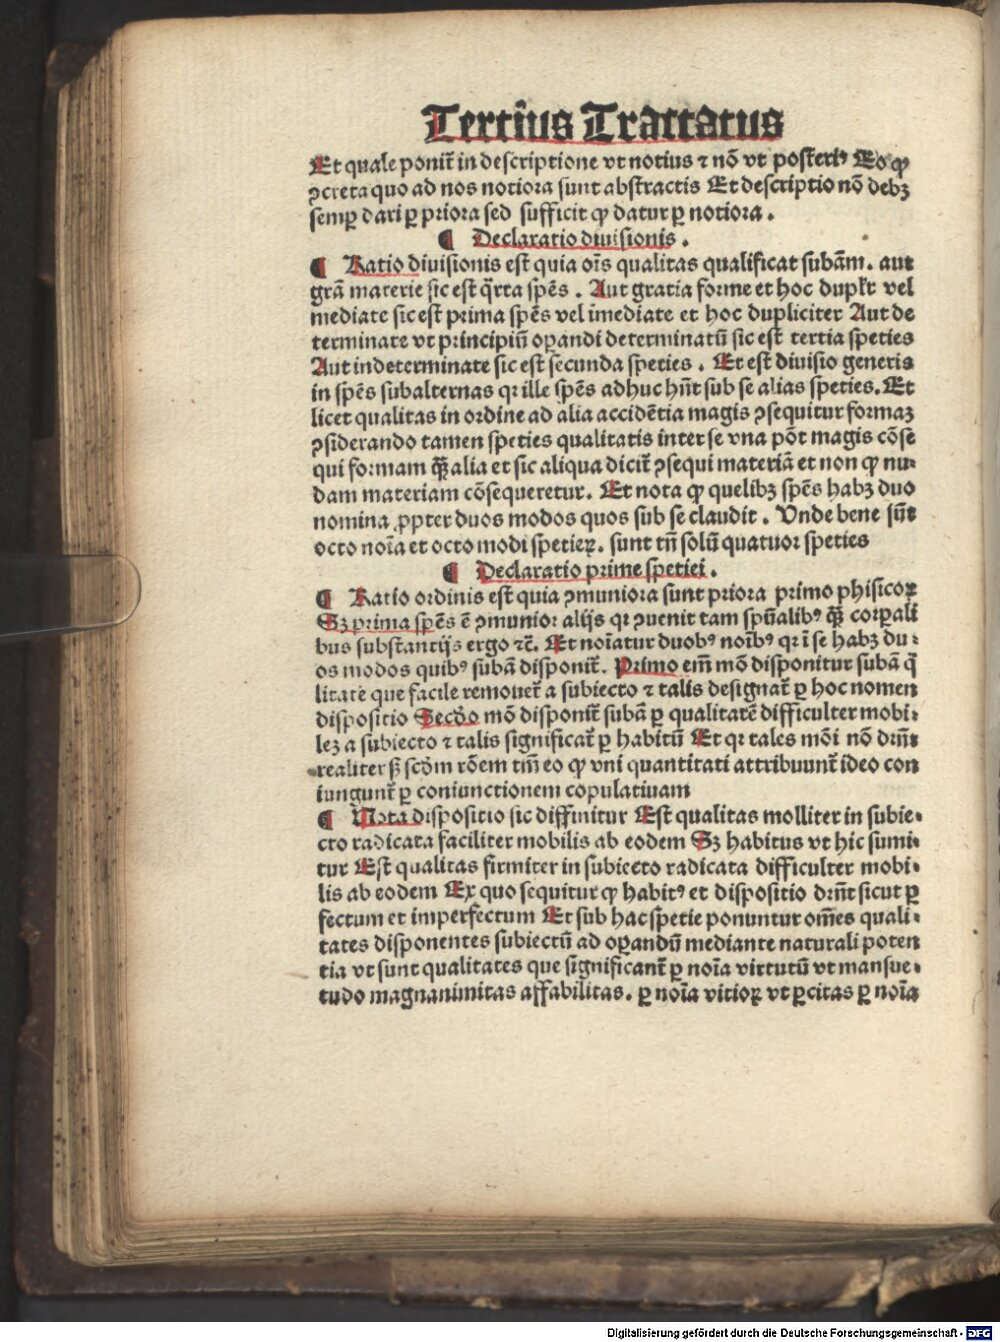 Tertius Tractatus
Et quale ponit᷑ in descriptione vt notius ⁊ nō vt posteriꝰ Eo ꝙ
ↄcreta quo ad nos notiora sunt abstractis Et descriptio nō debꝫ
semꝑ dari ꝑ priora sed sufficit ꝙ datur ꝑ notiora .
¶ Declaratio diuisionis .
¶ Ratio diuisionis est quia oīs qualitas qualificat subām. aut
grā materie sic est q̄rta spēs . Aut gratia forme et hoc duplr̄ vel
mediate sic est prima spēs vel īmediate et hoc dupliciter Aut de
terminate vt principiū oꝑandi determinatū sic est tertia speties
Aut indeterminate sic est secunda speties . Et est diuisio generis
in spēs subalternas qꝛ ille spēs adhuc hn̄t sub se alias speties. Et
licet qualitas in ordine ad alia accidētia magis ↄsequitur formaꝫ
ↄsiderando tamen speties qualitatis inter se vna pōt magis cōse
qui formam q̄ꝫ alia et sic aliqua dicit᷑ ↄsequi materiā et non ꝙ nu⸗
dam materiam cōsequeretur. Et nota ꝙ quelibꝫ spēs habꝫ duo
nomina ꝓpter duos modos quos sub se claudit . Vnde bene sūt
octo noīa et octo modi spetieꝝ. sunt tn̄ solū quatuor speties
¶ Declaratio prime spetiei .
¶ Ratio ordinis est quia ↄmuniora sunt priora primo phisicoꝝ
Sꝫ prima spēs ē ↄmunior alijs qꝛ ↄuenit tam spūalibꝰ q̄ꝫ corꝑali
bus substantijs ergo ⁊c̄. Et noīatur duobꝰ noībꝰ qꝛ ī se habꝫ du⸗
os modos quibꝰ subā disponit᷑. Primo em̄ mō disponitur subā q̄
litate que facile remouet᷑ a subiecto ⁊ talis designat᷑ ꝑ hoc nomen
dispositio Secdo mō disponit᷑ subā ꝑ qualitatē difficulter mobi⸗
leꝫ a subiecto ⁊ talis significat᷑ ꝑ habitū Et qꝛ tales mōi nō drn̄t
realiter sꝫ scdm rōem tm̄ eo ꝙ vni quantitati attribuunt᷑ ideo con
iungunt᷑ ꝑ coniunctionem copulatiuam
¶ Nota dispositio sic diffinitur Est qualitas molliter in subie⸗
cto radicata faciliter mobilis ab eodem Sꝫ habitus vt hic sumi⸗
tur Est qualitas firmiter in subiecto radicata difficulter mobi⸗
lis ab eodem Ex quo sequitur ꝙ habitꝰ et dispositio drn̄t sicut ꝑ
fectum et imperfectum Et sub hac spetie ponuntur om̄es quali⸗
tates disponentes subiectū ad oꝑandū mediante naturali poten
tia vt sunt qualitates que significant᷑ ꝑ noīa virtutū vt mansue⸗
tudo magnanimitas affabilitas. ꝑ noīa vitioꝝ vt ꝑcitas ꝑ noīa
Digitalisierung gefördert durch die Deutsche Forschungsgemeinschaft - DFG